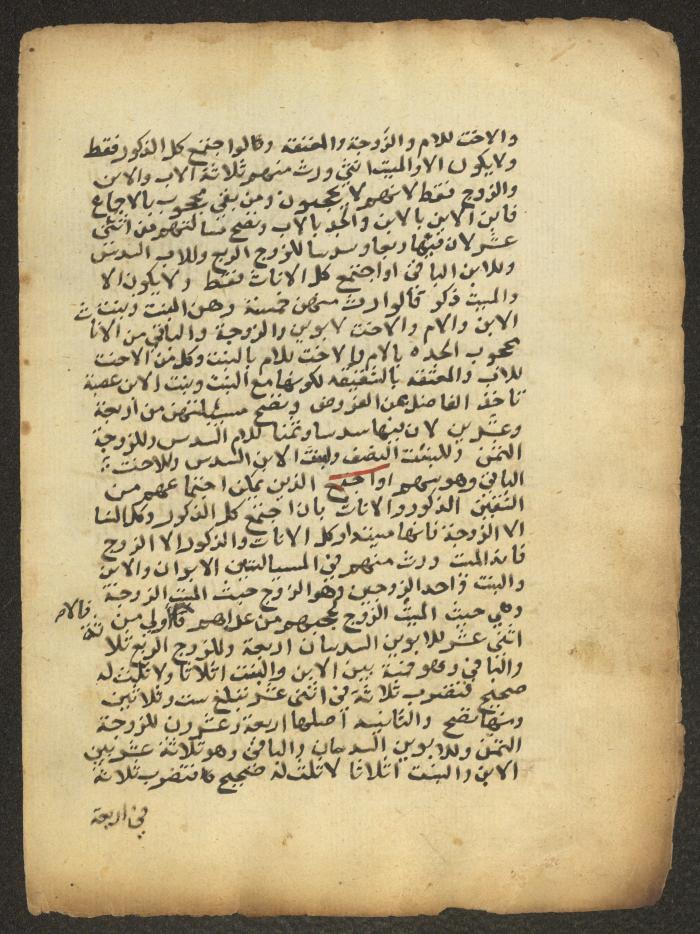 والاخت للام والزوجة والمعتقة وقالوا اجتمع كل الذكور فقط
ولا يكون الا والميت انثى ورث منهم ثلاثة الاب والابن
والزوج فقط لانهم لا يحجبون ومن بقي محجوب بالاجماع
فابن الابن بالابن والجد بالاب وتصح مسالتهم من اثنى
عشر لان فيها ربعا وسدسا للزوج الربع وللاب السدس
وللابن الباقي او اجتمع كل الاناث فقط ولا يكون الا
والميت ذكر فالوارث منهن خمسة وهن البنت وبنت
الابن والام والاخت لابوين والزوجة والباقي من الاناث
محجوب الجدة بالام والاخت للام بالبنت وكل من الاخت
للاب والمعتقة بالشقيقة لكونها مع البنت وبنت الابن عصبة
تاخذ الفاضل عن الفروض وتصح مسالتهن من اربعة
وعشرين لان فيها سدسا وثمنا للام السدس وللزوجة
الثمن وللبنت النصف ولبنت الابن السدس وللاخت
الباقي وهو سهم او اجتمع الذين يمكن اجتماعهم من
الصنفين الذكور والاناث بان اجتمع كل الذكور وكل النسا
الا الزوجة فانها ميتة او كل الاناث والذكور الا الزوج
فانه الميت ورث منهم في المسالتين الابوان والابن
والبنت واحد الزوجين وهو الزوج حيث الميت الزوجة
وهي حيث الميت الزوج لحجبهم من عداهم فالاولى من
اثنى عشر للابوين السدسان اربعة وللزوج الربع ثلاثة
والباقي وهو خمسة بين الابن والبنت اثلاثا ولا ثلث له
صحيح فتضرب ثلاثة في اثنى عشر تبلغ ست وثلاثين
ومنها تصح والثانية اصلها اربعة وعشرون للزوجة
الثمن وللابوين السدسان والباقي وهو ثلاثة عشر بين
الابن والبنت اثلاثا لا ثلث له صحيح فتضرب ثلاثة
في اربعة